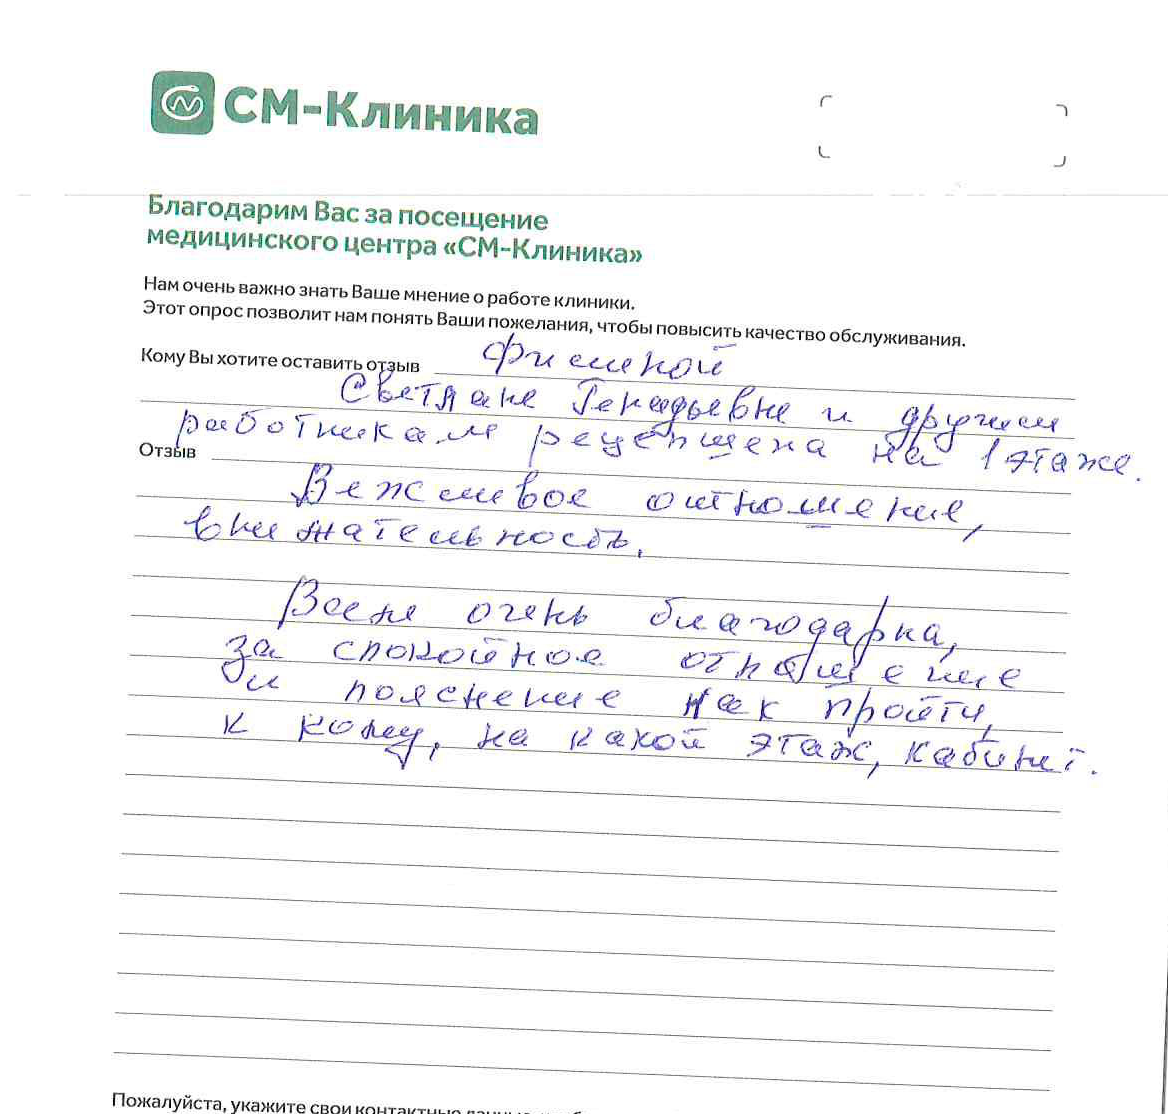 СМ-Клиника
Благодарим Вас за посещение
медицинского центра «СМ-Клиника»
Нам очень важно знать Ваше мнение о работе клиники.
Этот опрос позволит нам понять Ваши пожелания, чтобы повысить качество обслуживания.
Кому Вы хотите оставить отзыв
Светлане Генадьевне и другим
работникам рецепшена на 1 этаже.
Отзыв
Вежливое отношение,
внимательность.
Всем очень благодарна,
за спокойное отношение
и пояснение как пройти,
к кому, на какой этаж, кабинет.
Пожалуйста, укажите свои контактные